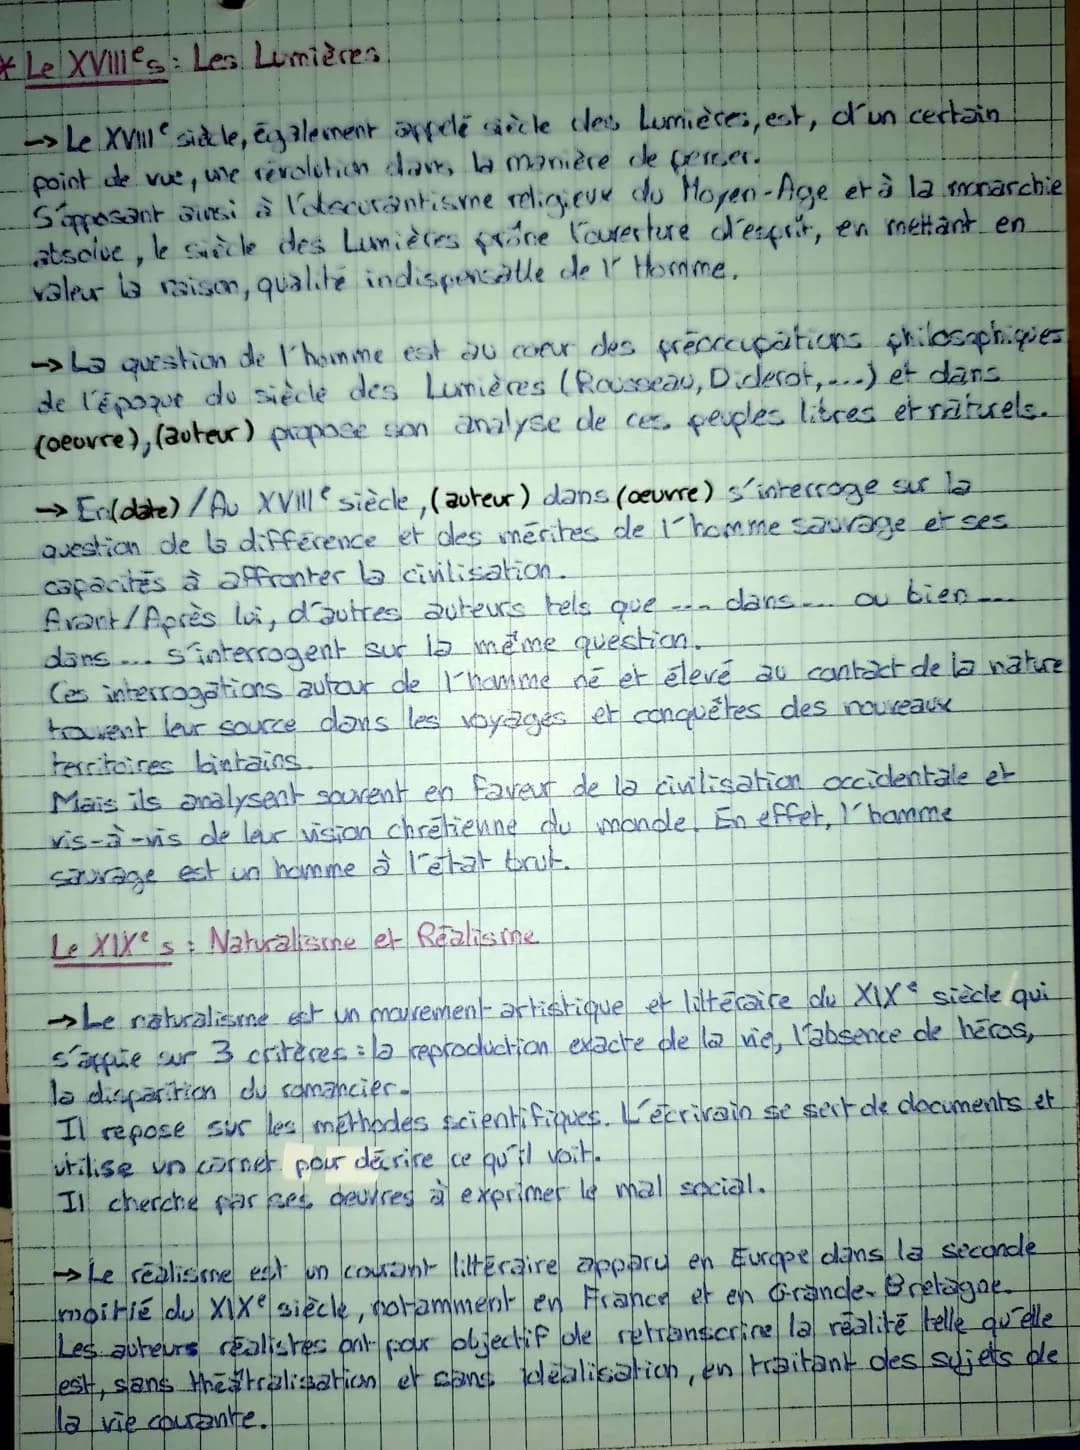 * Le XVIIIe s : Les Lumières
→ Le XVIIIe siècle, également appelé siècle des Lumières, est, d'un certain
point de vue, une révolution dans la manière de penser.
S'opposant ainsi à l'obscurantisme religieux du Moyen-Age et à la monarchie
absolue, le siècle des Lumières prône l'ouverture d'esprit, en mettant en
valeur la raison, qualité indispensable de l'Homme.
→ La question de l'homme est au coeur des préoccupations philosophiques
de l'époque du siècle des Lumières (Rousseau, Diderot,...) et dans
(oeuvre), (auteur) propose son analyse de ces peuples libres et naturels.
→ En (date) / Au XVIIIe siècle, (auteur) dans (oeuvre) s'interroge sur la
question de la différence et des mérites de l'homme sauvage et ses
capacités à affronter la civilisation.
Avant/Après lui, d'autres auteurs tels que ... dans... ou bien...
dans ... s'interrogent sur la même question.
Ces interrogations autour de l'homme né et élevé au contact de la nature
trouvent leur source dans les voyages et conquêtes des nouveaux
territoires lointains.
Mais ils analysent souvent en faveur de la civilisation occidentale et
vis-à-vis de leur vision chrétienne du monde. En effet, l'homme
sauvage est un homme à l'état brut.
Le XIXe s : Naturalisme et Réalisme
→ Le naturalisme est un mouvement artistique et littéraire du XIXe siècle qui
s'appuie sur 3 critères : la reproduction exacte de la vie, l'absence de héros,
la disparition du romancier.
Il repose sur les méthodes scientifiques. L'écrivain se sert de documents et
utilise un carnet pour décrire ce qu'il voit.
Il cherche par ses oeuvres à exprimer le mal social.
→ Le réalisme est un courant littéraire apparu en Europe dans la seconde
moitié du XIXe siècle, notamment en France et en Grande-Bretagne.
Les auteurs réalistes ont pour objectif de retranscrire la réalité telle qu'elle
est, sans théâtralisation et sans idéalisation, en traitant des sujets de
la vie courante.